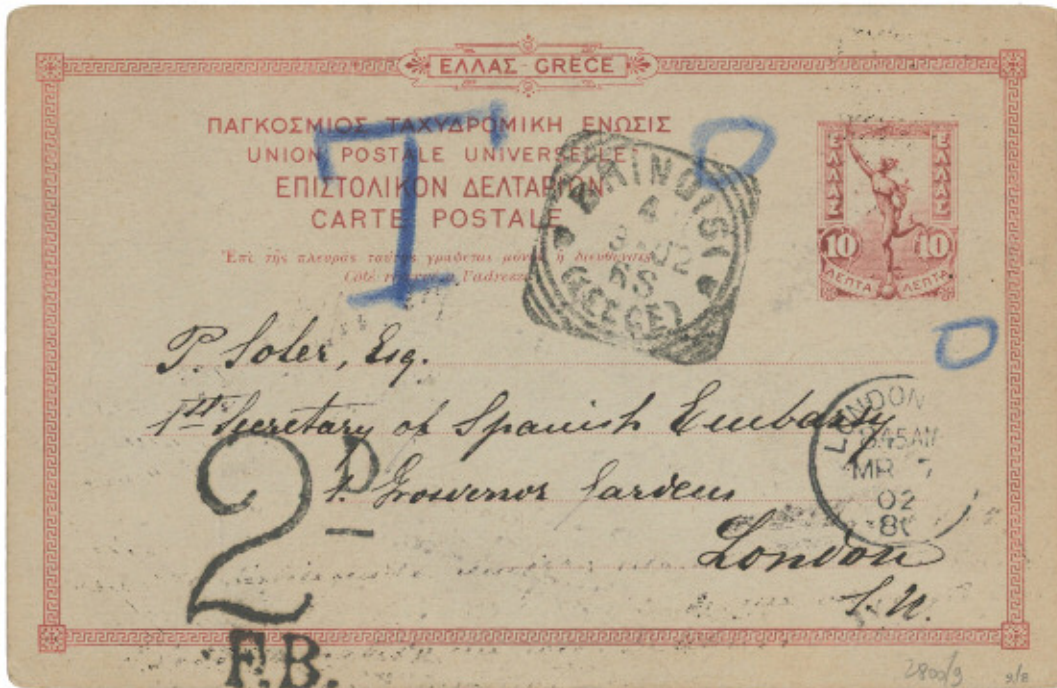 ΕΛΛΑΣ - GRÈCE
ΠΑΓΚΟΣΜΙΟΣ ΤΑΧΥΔΡΟΜΙΚΗ ΕΝΩΣΙΣ
UNION POSTALE UNIVERSELLE
ΕΠΙΣΤΟΛΙΚΟΝ ΔΕΛΤΑΡΙΟΝ
CARTE POSTALE
Ἐπὶ τῆς πλευρᾶς ταύτης γράφεται μόνον ἡ διεύθυνσις
Côté réservé à l'adresse
T
O
BRINDISI
A
02
ΕΛΛΑΣ
ΕΛΛΑΣ
10 10
ΛΕΠΤΑ ΛΕΠΤΑ
O
P. Soler, Esq.
1st Secretary of Spanish Embassy
1. Grosvenor Gardens
London
S.W.
LONDON
8.45AM
MR 7
02
2D
F.B.
2800/9